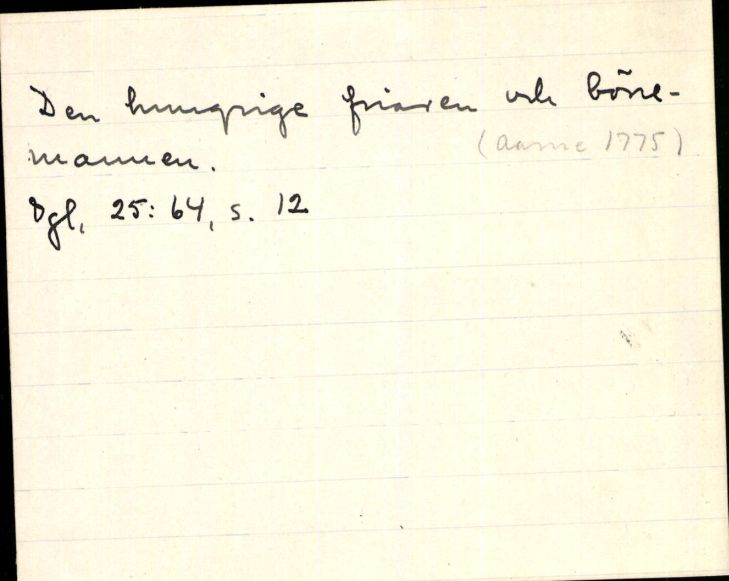 Den hungrige friaren och böne-
mannen. (Aarne 1775)
Ögl, 25:64, s. 12